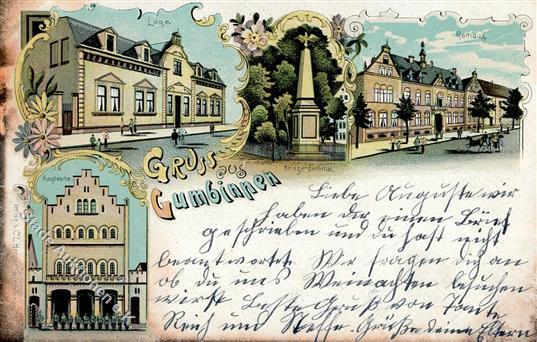 Loge.
Kriegerdenkmal.
Hauptwache.
GRUSS aus
Gumbinnen
Liebe Auguste wir
haben dir einen Brief
geschrieben und du hast nicht
beantwortet. Wir fragen dich an
ob du uns Weinachten besuchen
wirst Beste Gruß von Tante
und Neffe. Grüße deine Eltern